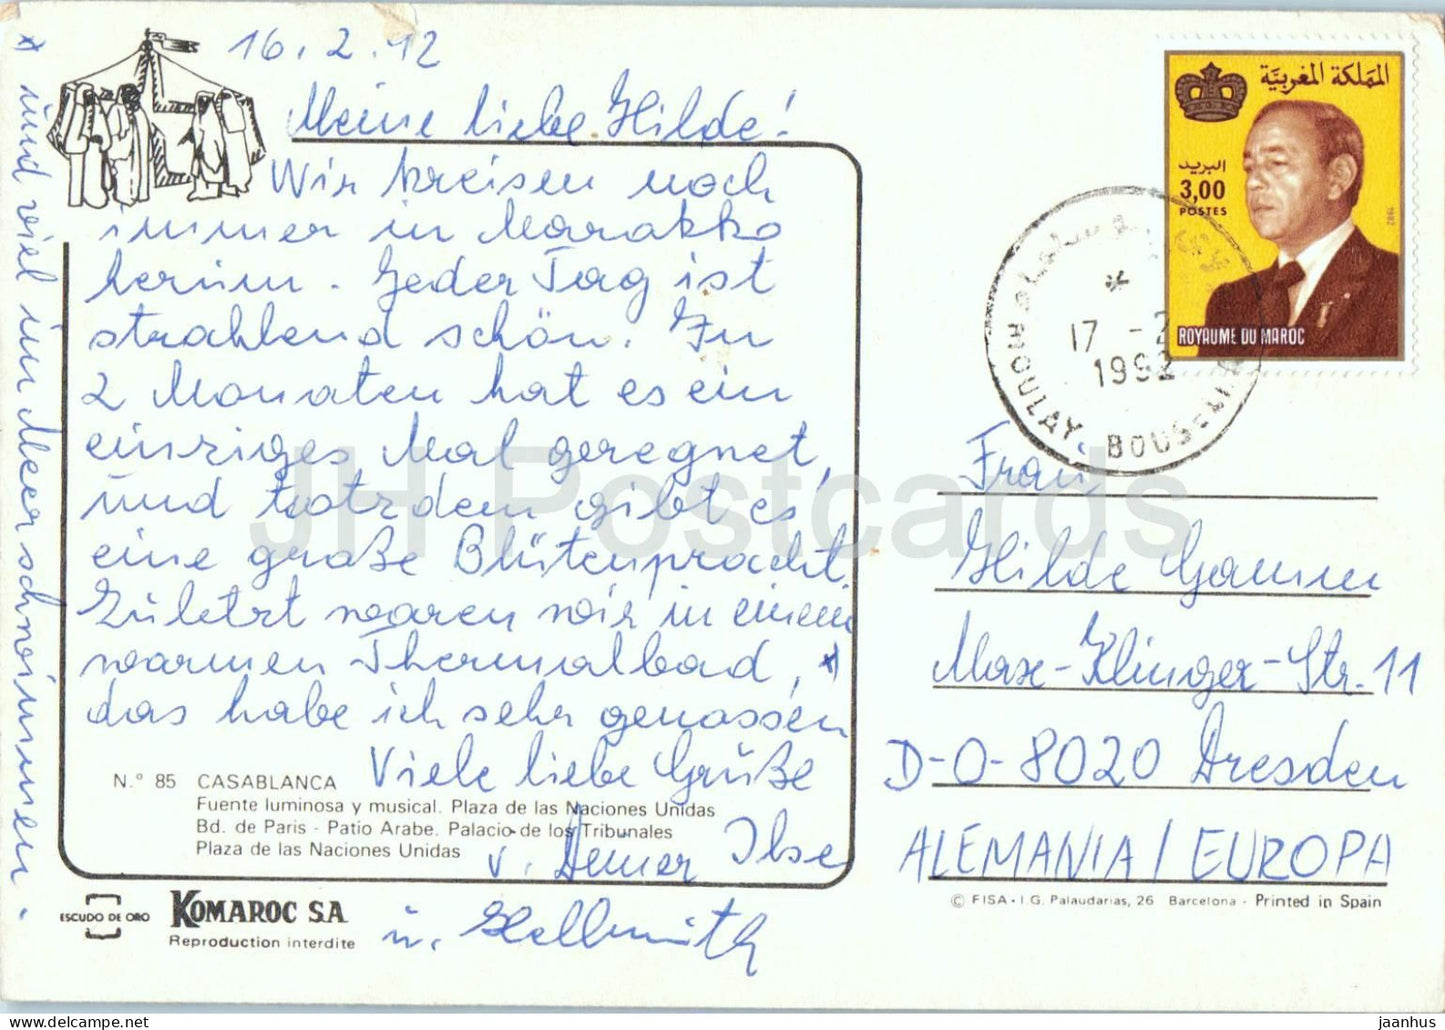 16.2.92
Meine liebe Hilde!
Wir kreisen noch
immer in Marokko
herum. Jeder Tag ist
strahlend schön. In
2 Monaten hat es ein
einziges Mal geregnet,
und trotzdem gibt es
eine große Blütenpracht.
Zuletzt waren wir in einem
warmen Thermalbad, *)
das habe ich sehr genossen
Viele liebe Grüße
v. Deiner Ilse
u. Hellmuth
*) und viel im Meer schwimmen.
N.° 85 CASABLANCA
Fuente luminosa y musical. Plaza de las Naciones Unidas
Bd. de Paris - Patio Arabe. Palacio de los Tribunales
Plaza de las Naciones Unidas
ESCUDO DE ORO
KOMAROC S.A.
Reproduction interdite
المملكة المغربية
البريد
3,00
POSTES
1982
ROYAUME DU MAROC
17 - 2
1992
MOULAY BOUSELHAM
Frau
Hilde Gamm
Max-Klinger-Str. 11
D-O-8020 Dresden
ALEMANIA / EUROPA
© FISA - I.G. Palaudarias, 26 Barcelona - Printed in Spain
JH Postcards
www.delcampe.net
jaanhund